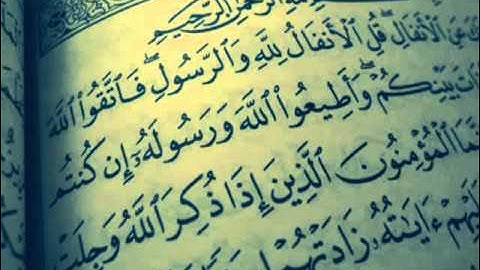 الرَّحْمَٰنِ الرَّحِيمِ
عَنِ الْأَنْفَالِ ۖ قُلِ الْأَنْفَالُ لِلَّهِ وَالرَّسُولِ ۖ فَاتَّقُوا اللَّهَ
بَيْنِكُمْ ۖ وَأَطِيعُوا اللَّهَ وَرَسُولَهُ إِنْ كُنْتُمْ
الْمُؤْمِنُونَ الَّذِينَ إِذَا ذُكِرَ اللَّهُ وَجِلَتْ
ءَايَتُهُ زَادَتْهُمْ